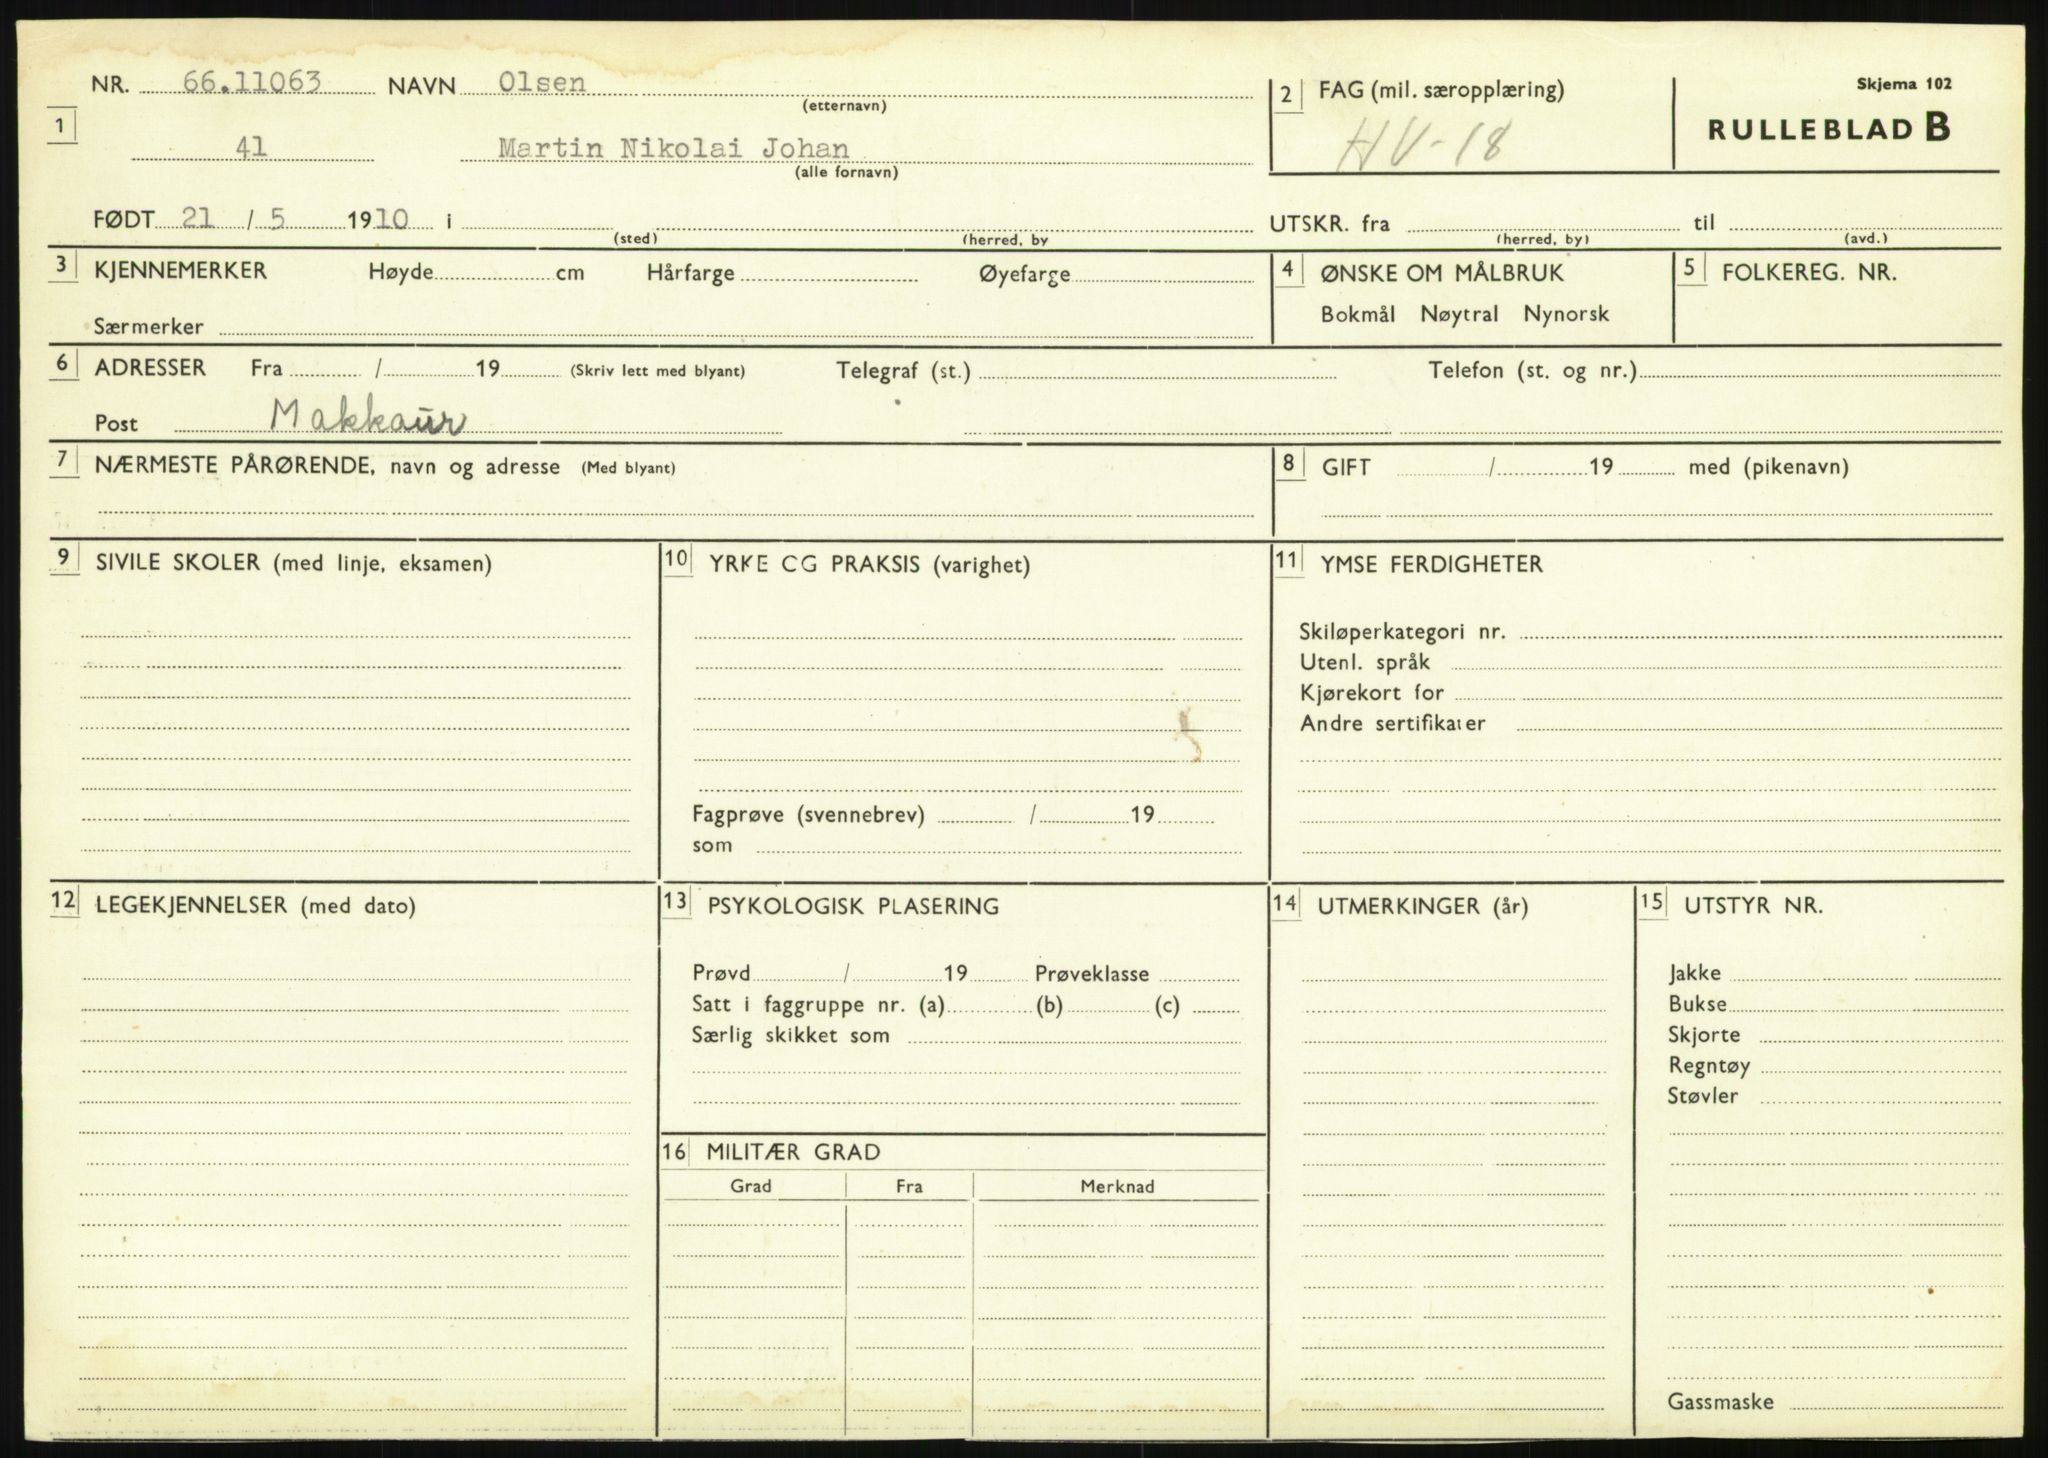 NR. 66.11063 NAVN Olsen (etternavn) 2 FAG (mil. særopplæring) Skjema 102
1 RULLEBLAD B
41 Martin Nikolai Johan (alle fornavn) HV-18
FØDT 21 / 5 1910 i (sted) (herred, by UTSKR. fra (herred, by) til (avd.)
3 KJENNEMERKER Høyde cm Hårfarge Øyefarge 4 ØNSKE OM MÅLBRUK 5 FOLKEREG. NR.
Særmerker Bokmål Nøytral Nynorsk
6 ADRESSER Fra / 19 (Skriv lett med blyant) Telegraf (st.) Telefon (st. og nr.)
Post Makkaur
7 NÆRMESTE PÅRØRENDE, navn og adresse (Med blyant) 8 GIFT / 19 med (pikenavn)
9 SIVILE SKOLER (med linje, eksamen) 10 YRKE CG PRAKSIS (varighet) 11 YMSE FERDIGHETER
Skiløperkategori nr.
Utenl. språk
Kjørekort for
Andre sertifikater
Fagprøve (svennebrev) / 19
som
12 LEGEKJENNELSER (med dato) 13 PSYKOLOGISK PLASERING 14 UTMERKINGER (år) 15 UTSTYR NR.
Prøvd / 19 Prøveklasse Jakke
Satt i faggruppe nr. (a) (b) (c) Bukse
Særlig skikket som Skjorte
Regntøy
Støvler
16 MILITÆR GRAD
Grad Fra Merknad
Gassmaske